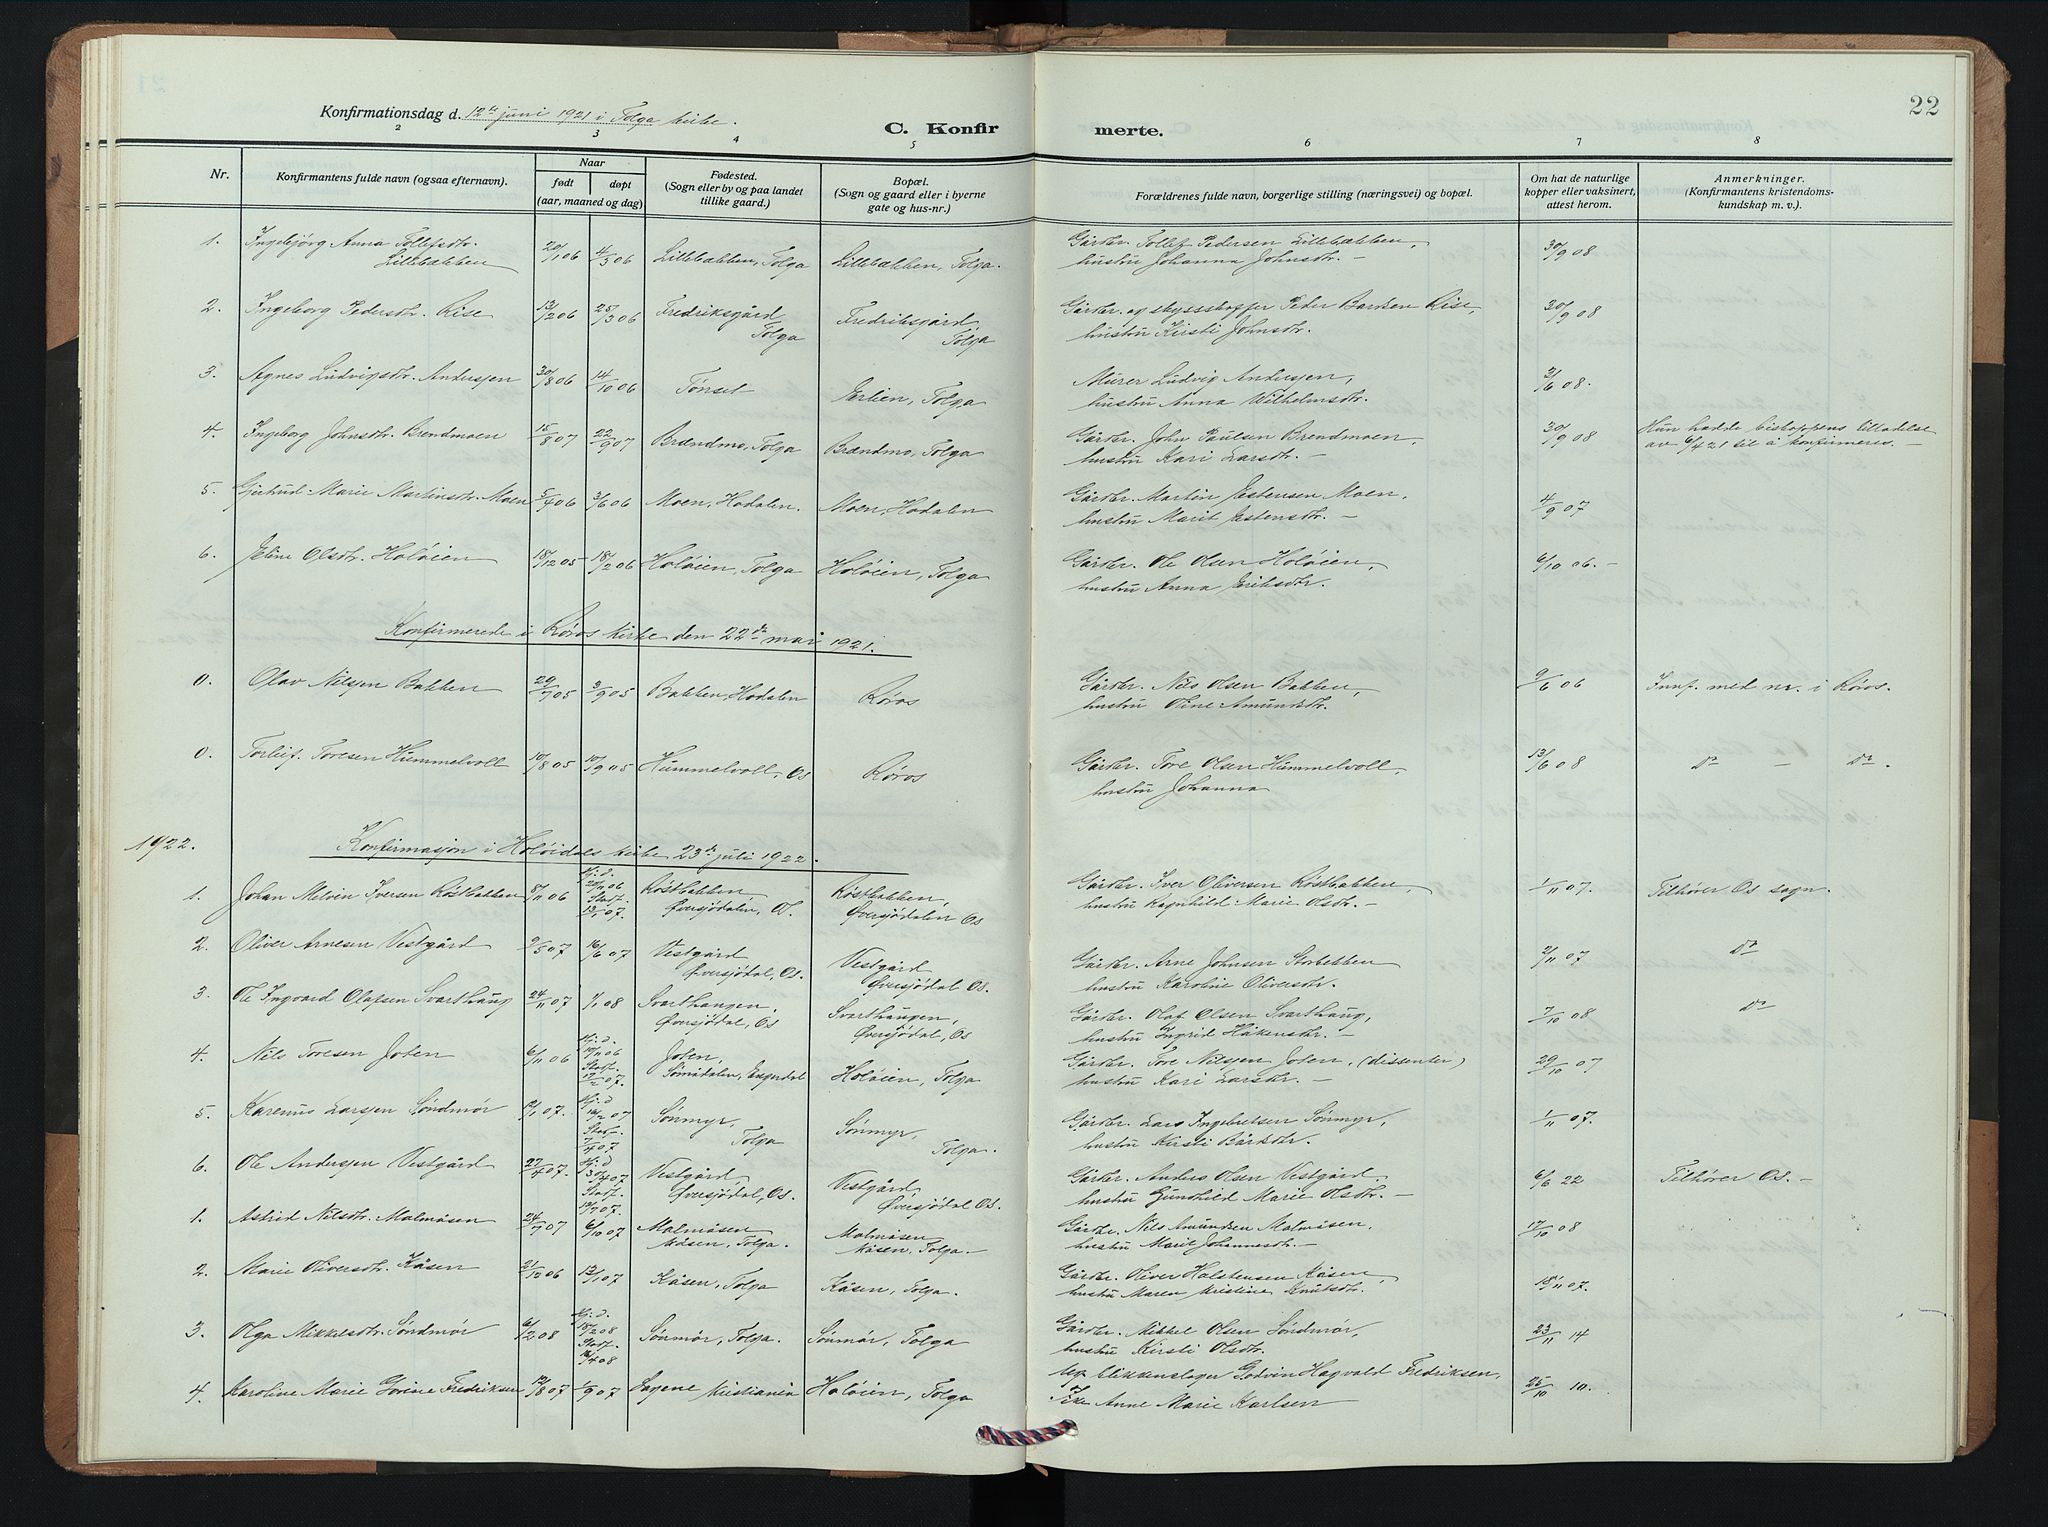 22
Konfirmationsdag d. 12te juni 1921 i Tolga kirke.
C. Konfirmerte.
2 3 4 5 6 7 8
Nr. Konfirmantens fulde navn (ogsaa efternavn). Naar født døpt (aar, maaned og dag) Fødested. (Sogn eller by og paa landet tillike gaard.) Bopæl. (Sogn og gaard eller i byerne gate og hus-nr.) Forældrenes fulde navn, borgerlige stilling (næringsvei) og bopæl. Om hat de naturlige kopper eller vaksinert, attest herom. Anmerkninger. (Konfirmantens kristendomskundskap m. v.).
1. Ingebjörg Anna Tollefsdtr. Lillebækken 20/1 06 4/3 06 Lillebækken, Tolga Lillebækken, Tolga. Gårdbr. Tollef Pedersen Lillebækken, 30/9 08
hustru Johanna Johnsdtr. –
2. Ingeborg Pedersdtr. Rise 13/2 06 25/3 06 Fredriksgård Tolga Fredriksgård Tolga Gårdbr. og skysskaffer Peder Bardsen Rise, 30/9 08
hustru Kirsti Johnsdtr.
3. Agnes Ludvigsdtr. Anderssen 30/8 06 14/10 06 Tønset Erlien, Tolga Murer Ludvig Anderssen, 3/6 08.
hustru Anna Wilhelmsdtr.
4. Ingeborg Johnsdtr. Brendmoen 15/8 07 22/9 07 Brændmo, Tolga Brændmo, Tolga Gårdbr. John Paulsen Brendmoen, 30/9 08 Hun hadde bispoppens tilladelse
hustru Kari Larsdtr. – av 6/4 21 til å konfirmeres. –
5. Gjertrud Marie Martinsdtr. Moen 5/4 06 3/6 06 Moen, Hodalen. Moen, Hodalen Gårdbr. Martin Estensen Moen, 4/9 07
hustru Marit Estensdtr. –
6. Eline Olsdtr. Holøien 18/12 05 18/2 06 Holøien, Tolga Holøien, Tolga Gårdbr. Ole Olsen Holøien, 6/10 06. –
hustru Anna Eriksdtr.
Konfirmerede i Røros kirke den 22de mai 1921.
0. Olav Nilssen Bakken 29/7 05 3/9 05 Bakken, Hodalen Røros Gårdbr. Nils Olsen Bakken, 9/6 06 Innf. med nr. i Røros.
hustru Oline Amundsdtr.
0. Torleif Toresen Hummelvoll 10/8 05 10/9 05 Hummelvoll, Os Røros Gårdbr. Tore Olsen Hummelvoll, 13/6 08 Do – Do.
hustru Johanna
1922. Konfirmasjon i Holøidals kirke 23de juli 1922.
1. Johan Melvin Iversen Røstbakken 8/11 06 Hj. d. 20/11 06 Stadf. 13/1 07. Røstbakken Øversjødalen, Os. Røstbakken, Øversjødalen Os Gårdbr. Iver Oliversen Røstbakken, 1/11 07. Tilhører Os sogn.
hustru Ragnhild Marie Olsdtr. –
2. Oliver Arnesen Vestgård 2/5 07 16/6 07 Vestgård Øversjødal, Os. Vestgård Øversjødal Os. Gårdbr. Arne Johnsen Storbekken 2/11 07 Do
hustru Karoline Oliversdtr.
3. Ole Ingvard Olafsen Svarthaug 24/11 07 1/1 08 Svarthaugen, Øversjødal, Os Svarthaugen, Øversjødal, Os Gårdbr. Olaf Olsen Svarthaug, 7/10 08 Do
hustru Ingrid Håkensdtr.
4. Nils Toresen Joten 6/11 06 Hj. d. 10/11 06 Stadf. 17/2 07. Joten, Sømådalen, Engerdal Holøien, Tolga Gårdbr. Tore Nilssen Joten, (dissenter) 29/10 07
hustru Kari Larsdtr. –
5. Karenus Larssen Søndmør 12/1 07. Hj. d 16/2 07 Stadf. 7/4 07 Sønmyr, Tolga Sønmyr, Tolga. Gårdbr. Lars Ingebretsen Sønmyr, 1/11 07.
hustru Kirsti Bårdsdtr.
6. Ole Anderssen Vestgård 27/4 07. Hj. d 30/4 07 Stadf. 14/7 07. Vestgård Øversjødal, Os. Vestgård Øversjødal Os. Gårdbr. Anders Olsen Vestgård, 6/6 22 Tilhører Os. –
hustru Gunhild Marie Olsdtr. –
1. Astrid Nilsdtr. Malmåsen 24/7 07 6/10 07 Malmåsen Kåsen, Tolga. Malmåsen Kåsen, Tolga. – Gårdbr. Nils Amundsen Malmåsen, 17/10 08
hustru Marit Johannesdtr. –
2. Marie Oliversdtr. Kåsen 21/12 06 13/1 07 Kåsen, Tolga Kåsen, Tolga. Gårdbr. Oliver Halstensen Kåsen, 18/11 07.
hustru Maren Kristine Knutsdtr.
3. Olga Mikkelsdtr. Søndmør 6/12 08 Hj. d. 18/2 08 Stadf. 16/4 08 Sønmør, Tolga. Sønmør, Tolga Gårdbr. Mikkel Olsen Søndmør, 23/11 14
hustru Kirsti Olsdtr.
4. Karoline Marie Gorine Fredriksen 12/8 07 1/9 07 Sagene Kristiania Holøien, Tolga blikkenslager Godvin Hagvald Fredriksen, 25/10 10.
Anne Marie Karlsen